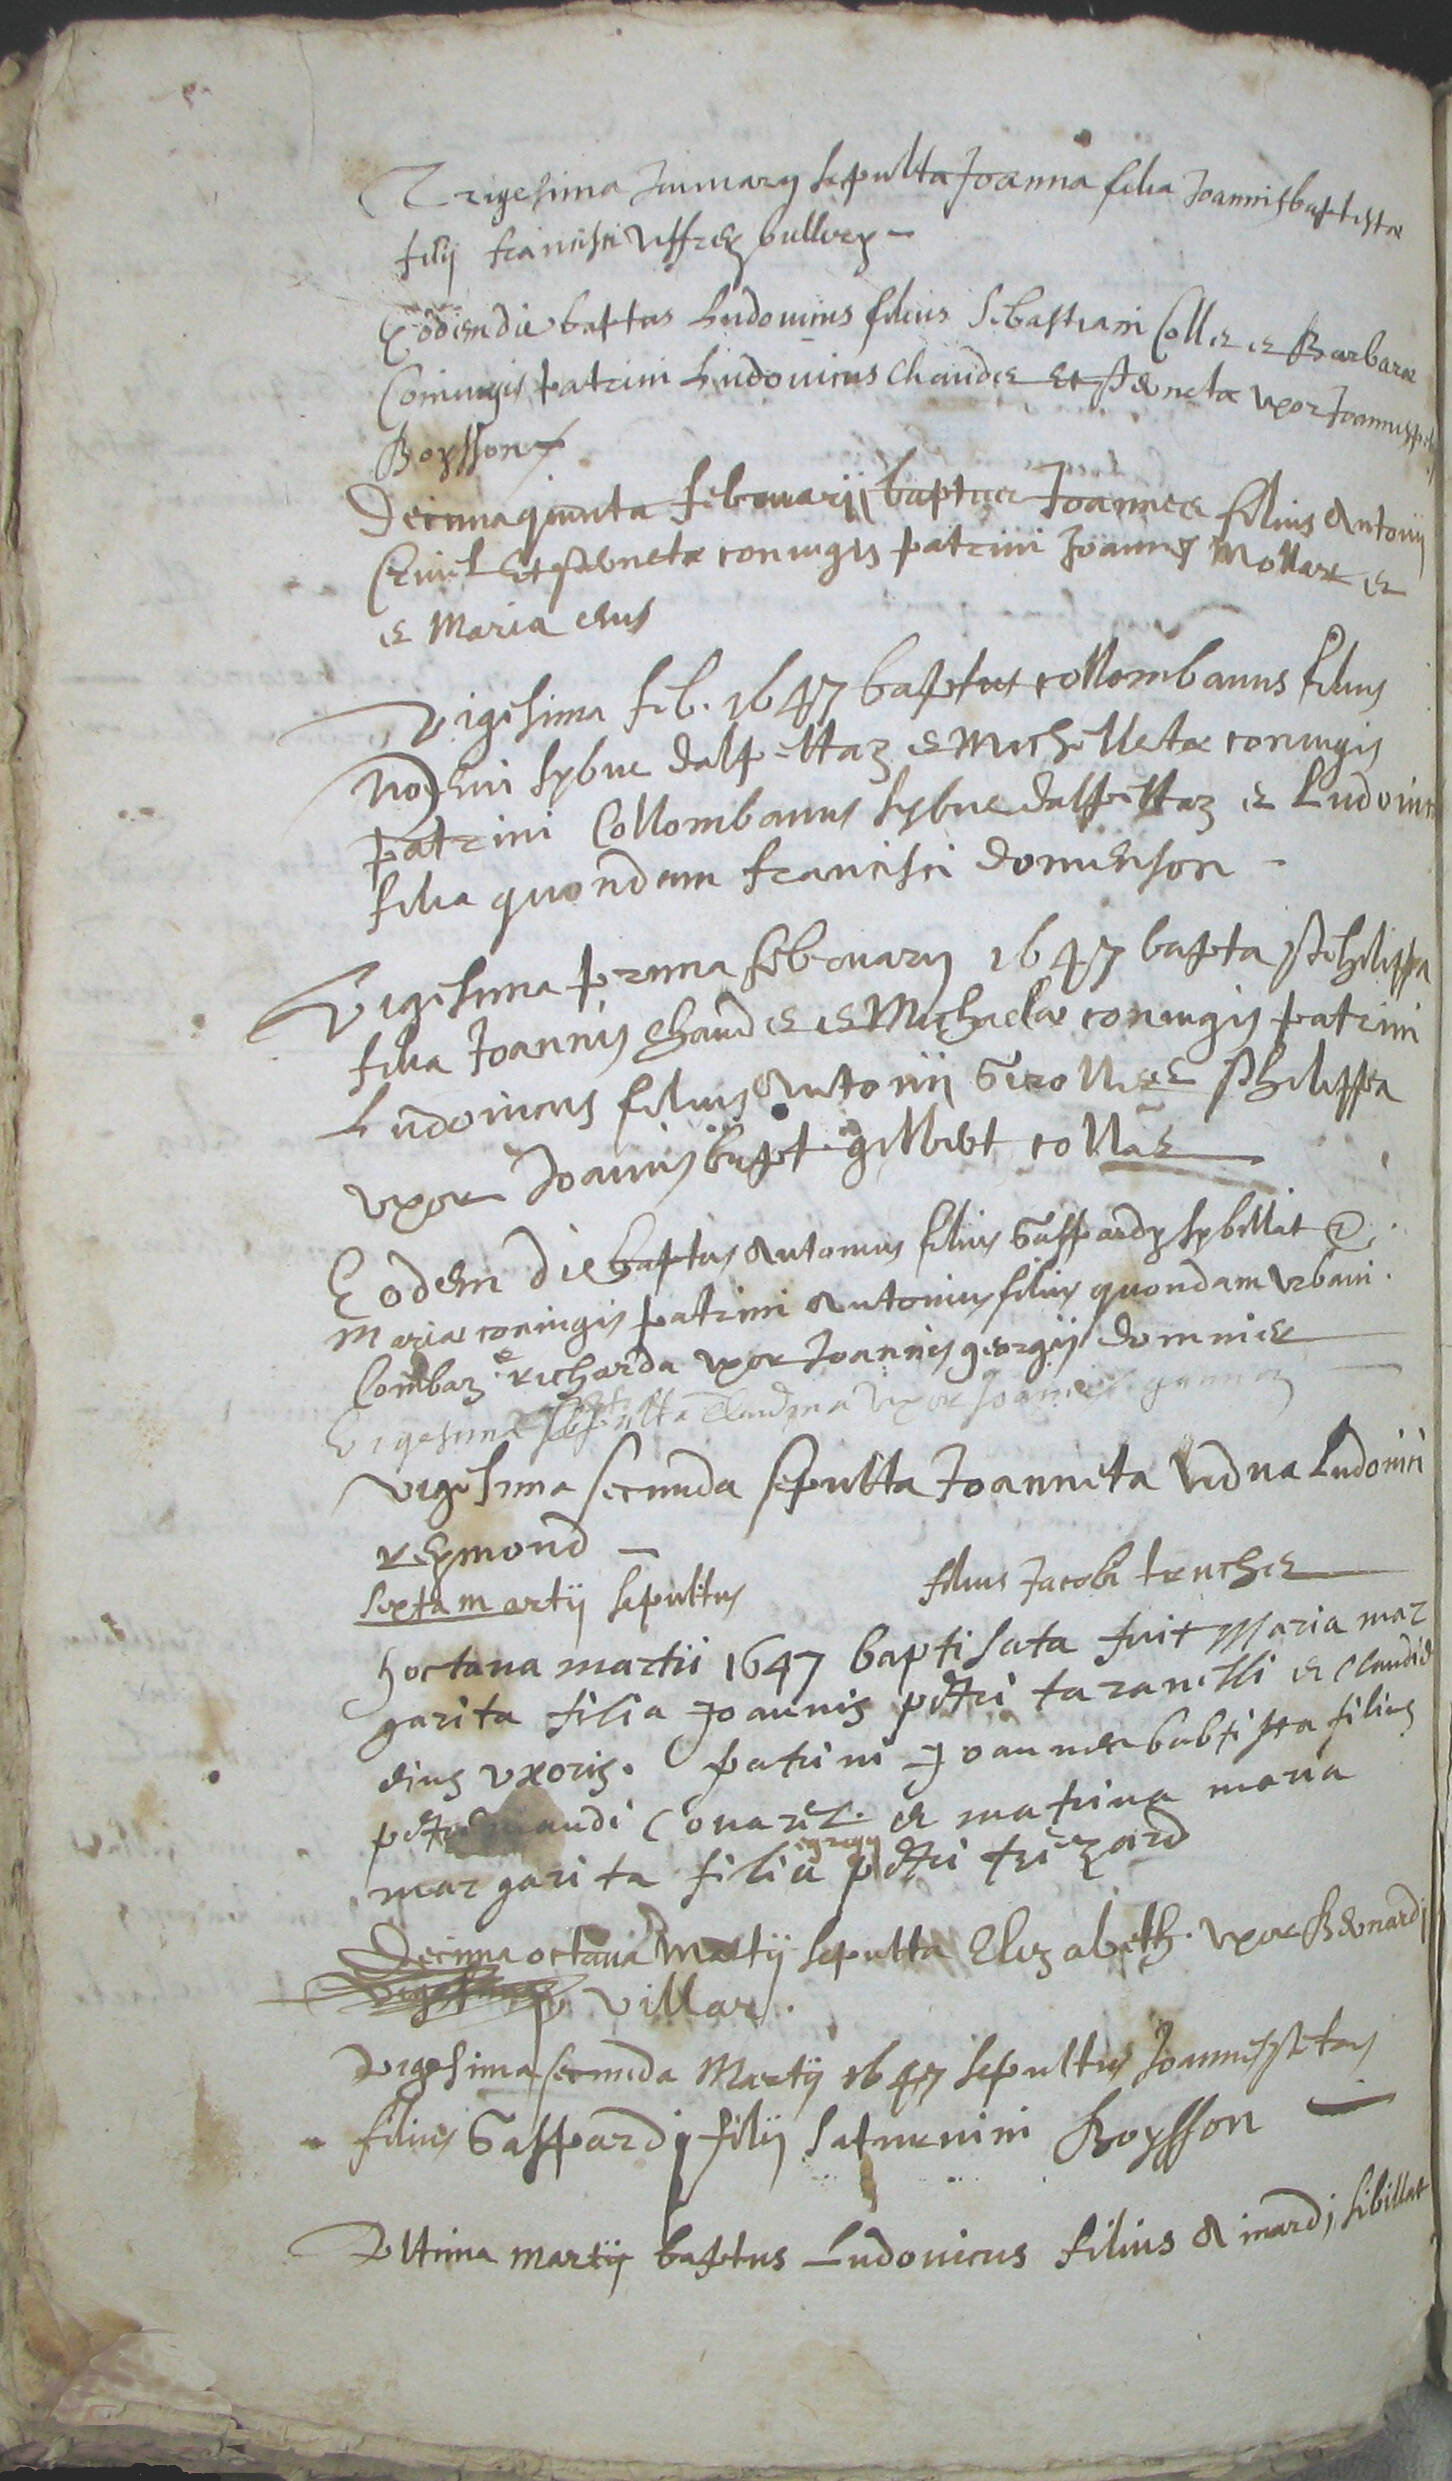 Trigesima Januarij sepulta Joanna filia Joannisbaptistae
filij francisci Vffrey bullery
Eodem die baptus Ludovicus filius Sebastiani Collet et Barbarae
Coniugis patrini Ludovicus Chaudet et perneta uxor Joannis
Boysson
Decimaquinta februarij baptus Joannes filius Antonij
et perneta coniugis patrini Joannes Mollard et
et Maria eius
Vigesima feb. 1647 baptus collombanus filius
sybue dalpettaz et Michelletae coniugis
patrini Collombanus sybue dalpettaz et Ludovica
filia quondam francisci domenson
Vigesima prima februarij 1647 bapta philippa
filia Joannis chaudet et Michaelae coniugis patrini
Ludovicus filius Antonij Girollet et philippa
vxor Joannisbapt gilbert collae
Eodem die baptus Antonius filius Gaspardy sybillat et
Mariae coniugis patrini Antonius filius quondam vrbani
Combaz et richarda vxor Joannis georgij domnier
Vigesima sepulta Claudina vxor Joannis
Vigesima secunda sepulta Joanneta vidua Ludovici
reymond
Septa martij sepultus filius Jacobi truchet
hoctava martii 1647 baptisata fuit Maria mar
garita filia Joannis petri taranelli et claudiae
eius vxoris. patrini Joannes babtista filius
petri et matrina maria
margarita filia egregij petri
Decima octava Martij sepulta Elizabeth vxor Bernardi
Villar.
Vigesima secunda Martij 1647 sepultus Joannes petrus
filius Gaspardi filij saturnini Boysson
Vltima martij baptus Ludovicus filius Aimardi sibillat